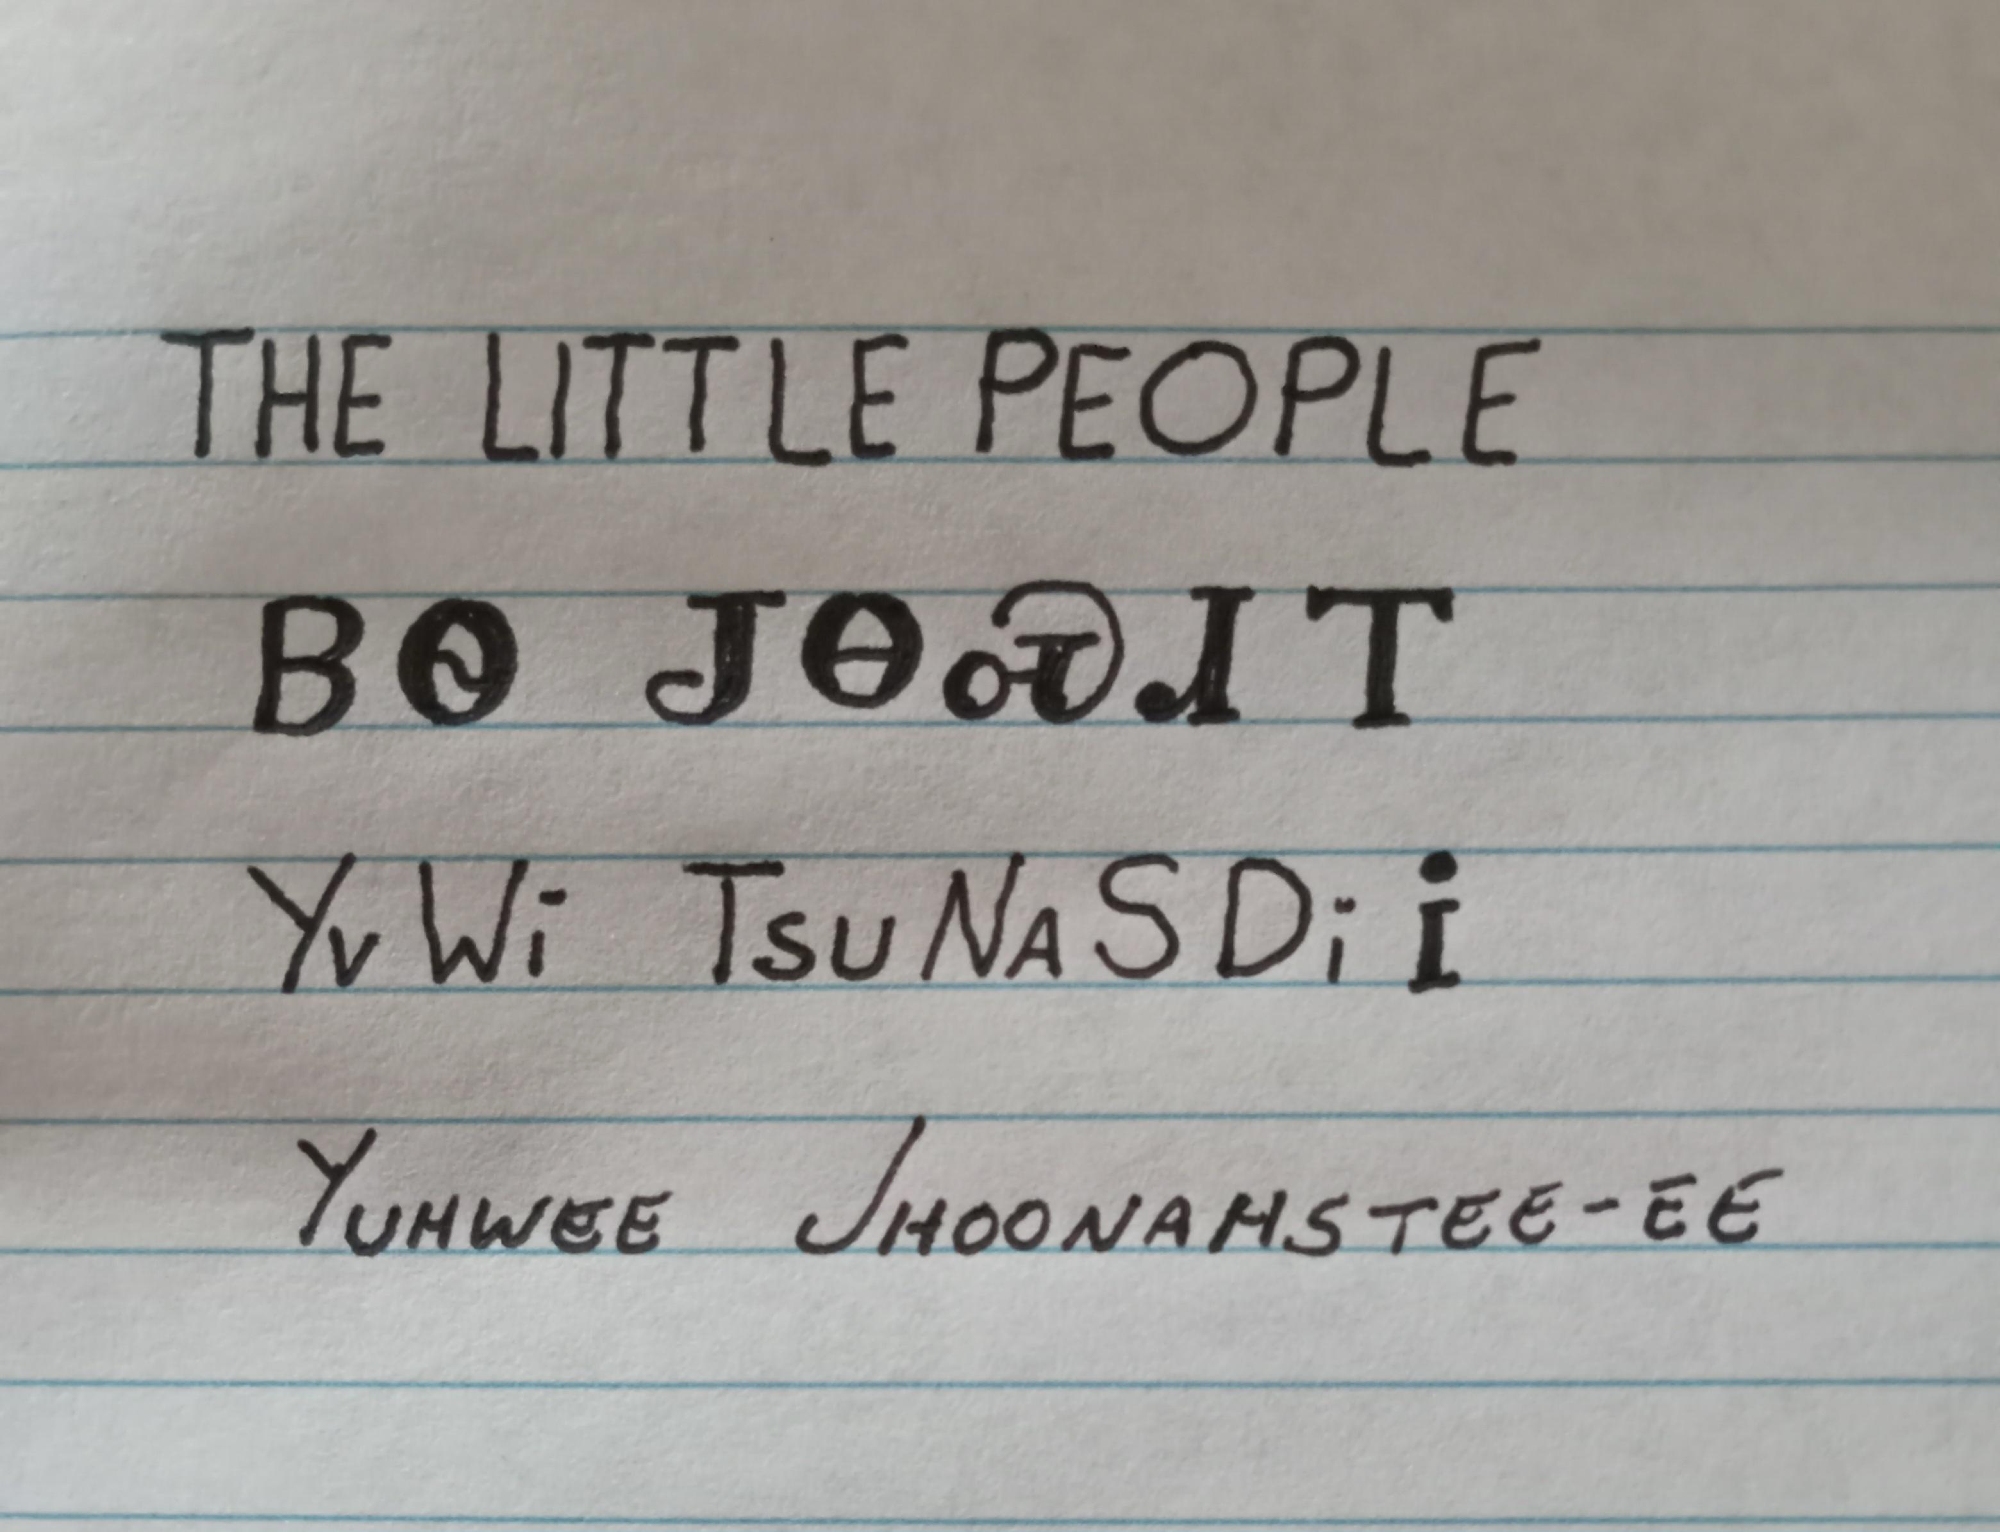 THE LITTLE PEOPLE
ᏴᏫ ᏧᎾᏍᏗᎢ
YvWi TsuNaSDi i
YUHWEE JHOONAHSTEE-EE